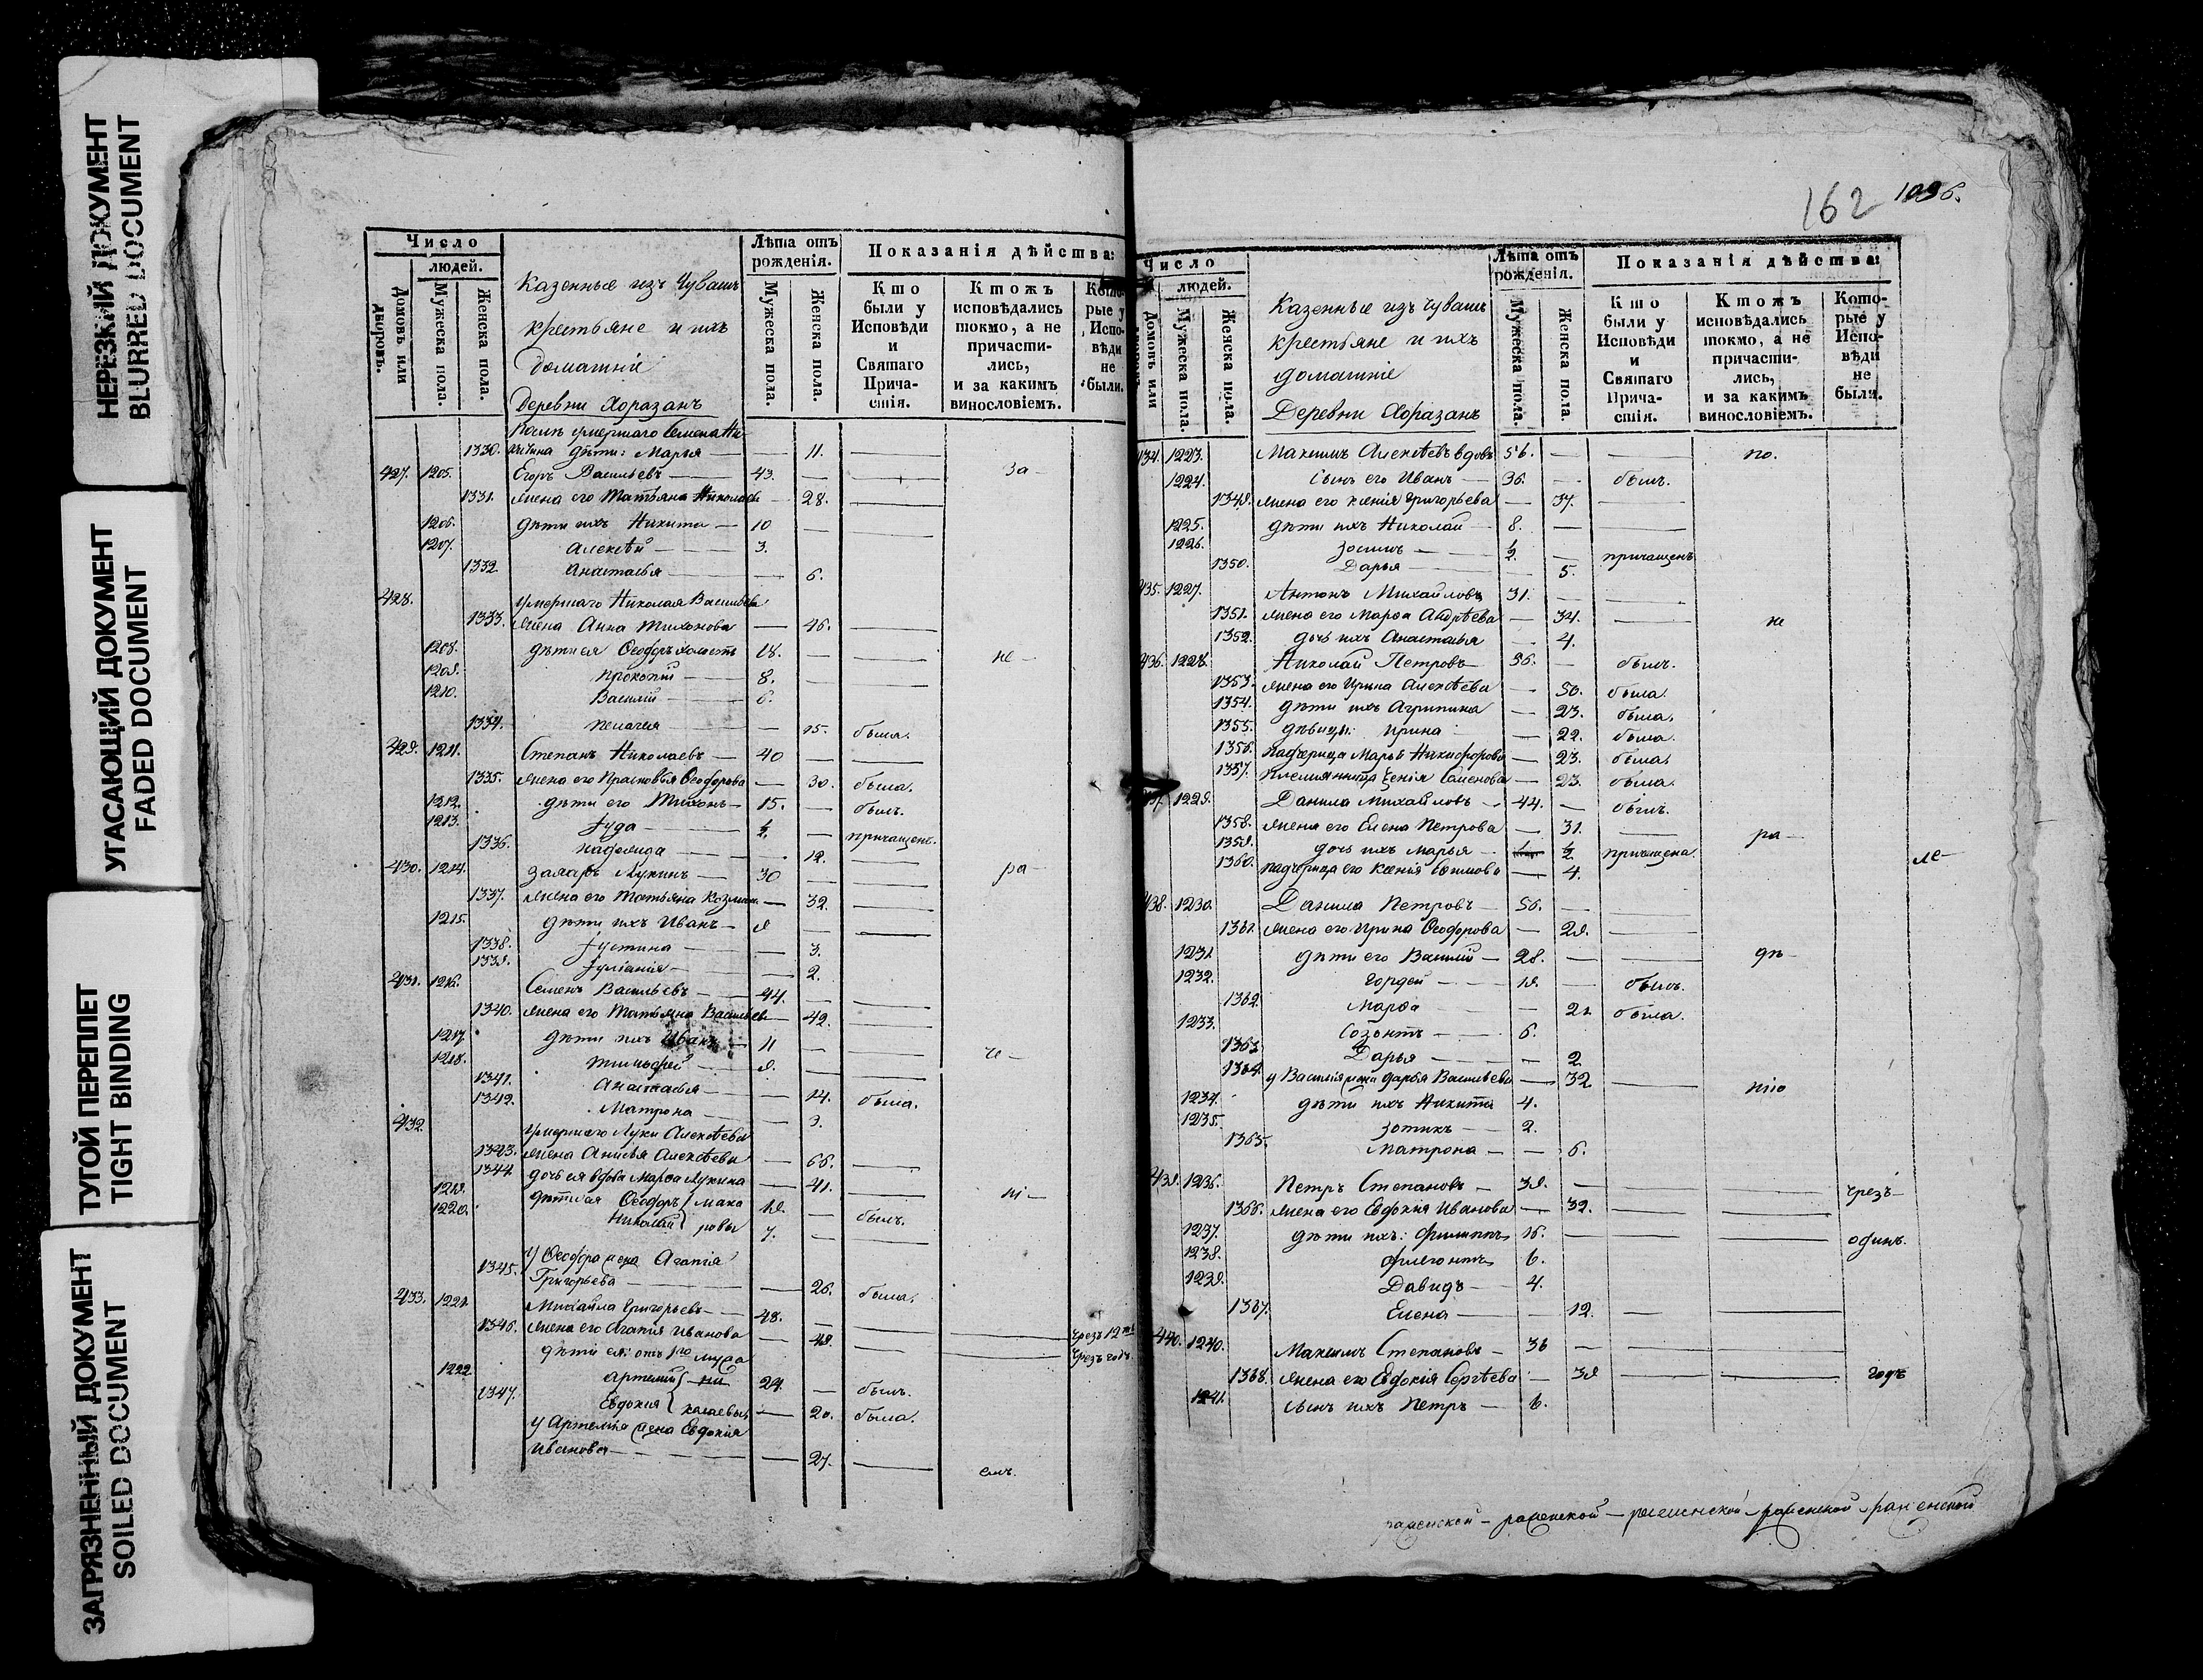 НЕРЕЗКИЙ ДОКУМЕНТ
BLURRED DOCUMENT
УГАСАЮЩИЙ ДОКУМЕНТ
FADED DOCUMENT
ТУГОЙ ПЕРЕПЛЕТ
TIGHT BINDING
ЗАГРЯЗНЕННЫЙ ДОКУМЕНТ
SOILED DOCUMENT
Число
людей.
Домовъ или дворовъ.
Мужеска пола.
Женска пола.
Казенные изъ Чувашъ
крестьяне и ихъ
домашніе
Деревни Хоразанъ
Лѣта отъ рожденія.
Мужеска пола.
Женска пола.
Показанія дѣйства:
Кто были у Исповѣди и Святаго Причастія.
Ктожъ исповѣдались токмо, а не причастились, и за какимъ винословіемъ.
Которые у Исповѣди не были.
умершаго Семена
1330. дѣти: Марья — 11.
427. 1205. Егоръ Васильевъ — 43. — за —
1331. жена его Татьяна Николаева — 28.
1206. дѣти ихъ Никита — 10
1207. Алексѣй — 3.
1332. Анастасья — 6.
428. умершаго Николая Васильева
1333. жена Анна Тихонова — 46.
1208. дѣти ея Ѳеодоръ холостъ 18. — не —
1209. Прокопій — 8.
1210. Василій — 6.
1334. Пелагея — 15. была.
429. 1211. Степанъ Николаевъ — 40
1335. жена его Прасковья Ѳеодорова — 30. была.
1212. дѣти его Тихонъ — 15. — былъ.
1213. Іуда — ½. — причащенъ.
1336. — 12.
430. 1214. Захаръ Лукинъ — 30 — ра —
1337. жена его Татьяна Козмина — 32.
1215. дѣти ихъ Иванъ — 9
1338. Іустина — 3.
1339. Іуліанія — 2.
431. 1216. Семенъ Васильевъ — 44.
1340. жена его Татьяна Васильева — 42.
1217. дѣти ихъ Иванъ — 11 — че —
1218. Тимофей — 9.
1341. Анастасья — 14. была.
1342. Матрона — 3.
432. умершаго Луки Алексѣева
1343. жена Анисья Алексѣева — 66.
1344. дочь ея вдова Марѳа Лукина — 41. — ні —
1219. дѣти ея Ѳеодоръ } Мака 19. — былъ.
1220. Николай } ровы 7.
1345. у Ѳеодора жена Агапія
Григорьева — 26. была.
433. 1221. Михайла Григорьевъ — 48. — Чрезъ 12 ть
1346. жена его Агапія Иванова — 49. — Чрезъ годъ.
дѣти ея отъ 1го мужа
1222 Артемій } 24. — былъ.
1347. Евдокія } — 20. была.
у Артемья жена Евдокія
Иванова — 27. — емъ.
162 1096.
Число
людей.
Домовъ или дворовъ.
Мужеска пола.
Женска пола.
Казенные изъ Чувашъ
крестьяне и ихъ
домашніе
Деревни Хоразанъ
Лѣта отъ рожденія.
Мужеска пола.
Женска пола.
Показанія дѣйства:
Кто были у Исповѣди и Святаго Причастія.
Ктожъ исповѣдались токмо, а не причастились, и за какимъ винословіемъ.
Которые у Исповѣди не были.
434. 1223. Максимъ Алексѣевъ вдовъ 56. — по.
1224. сынъ его Иванъ — 36. — былъ.
1349. жена его Ксенія Григорьева — 37.
1225. дѣти ихъ Николай — 8.
1226. Зосимъ — ½. — причащенъ
1350. Дарья — 5.
435. 1227. Антонъ Михайловъ 31.
1351. жена его Марѳа Андрѣева — 34. — не
1352. дочь ихъ Анастасья — 4.
436. 1228. Николай Петровъ — 56. — былъ.
1353. жена его Ирина Алексѣева — 50. была.
1354. дѣти ихъ Агрипина — 23. была.
1355. дѣвицы: Ирина — 22. была.
1356. падчерица Марья Никифорова — 23. была.
1357. племянница Ксенія Семенова — 23. была.
437. 1229. Данила Михайловъ — 44. — былъ.
1358. жена его Елена Петрова — 31. — ра —
1359. дочь ихъ Марья — ½ причащена. ле —
1360. падчерица его Ксенія Ефимова — 4.
438. 1230. Данила Петровъ — 56.
1361. жена его Ирина Ѳеодорова — 29.
1231. дѣти его Василій — 28. — дѣ —
1232. Гордей — 19. — былъ.
1362. Марѳа — 21 была.
1233. Созонтъ — 6.
1363. Дарья — 2
1364. у Василія жена Дарья Васильева — 32 — нію
1234. дѣти ихъ Никита 4.
1235. Зотикъ — 2.
1365. Матрона — 6.
439. 1236. Петръ Степановъ — 39. — чрезъ —
1366. жена его Евдокія Иванова — 32.
1237. дѣти ихъ: Филиппъ 16. — одинъ.
1238. Флегонтъ 6.
1239. Давидъ — 4.
1367. Елена — 12.
440. 1240. Максимъ Степановъ — 36
1368. жена его Евдокія Сергѣева — 39 — годъ
1241. сынъ ихъ Петръ — 6.